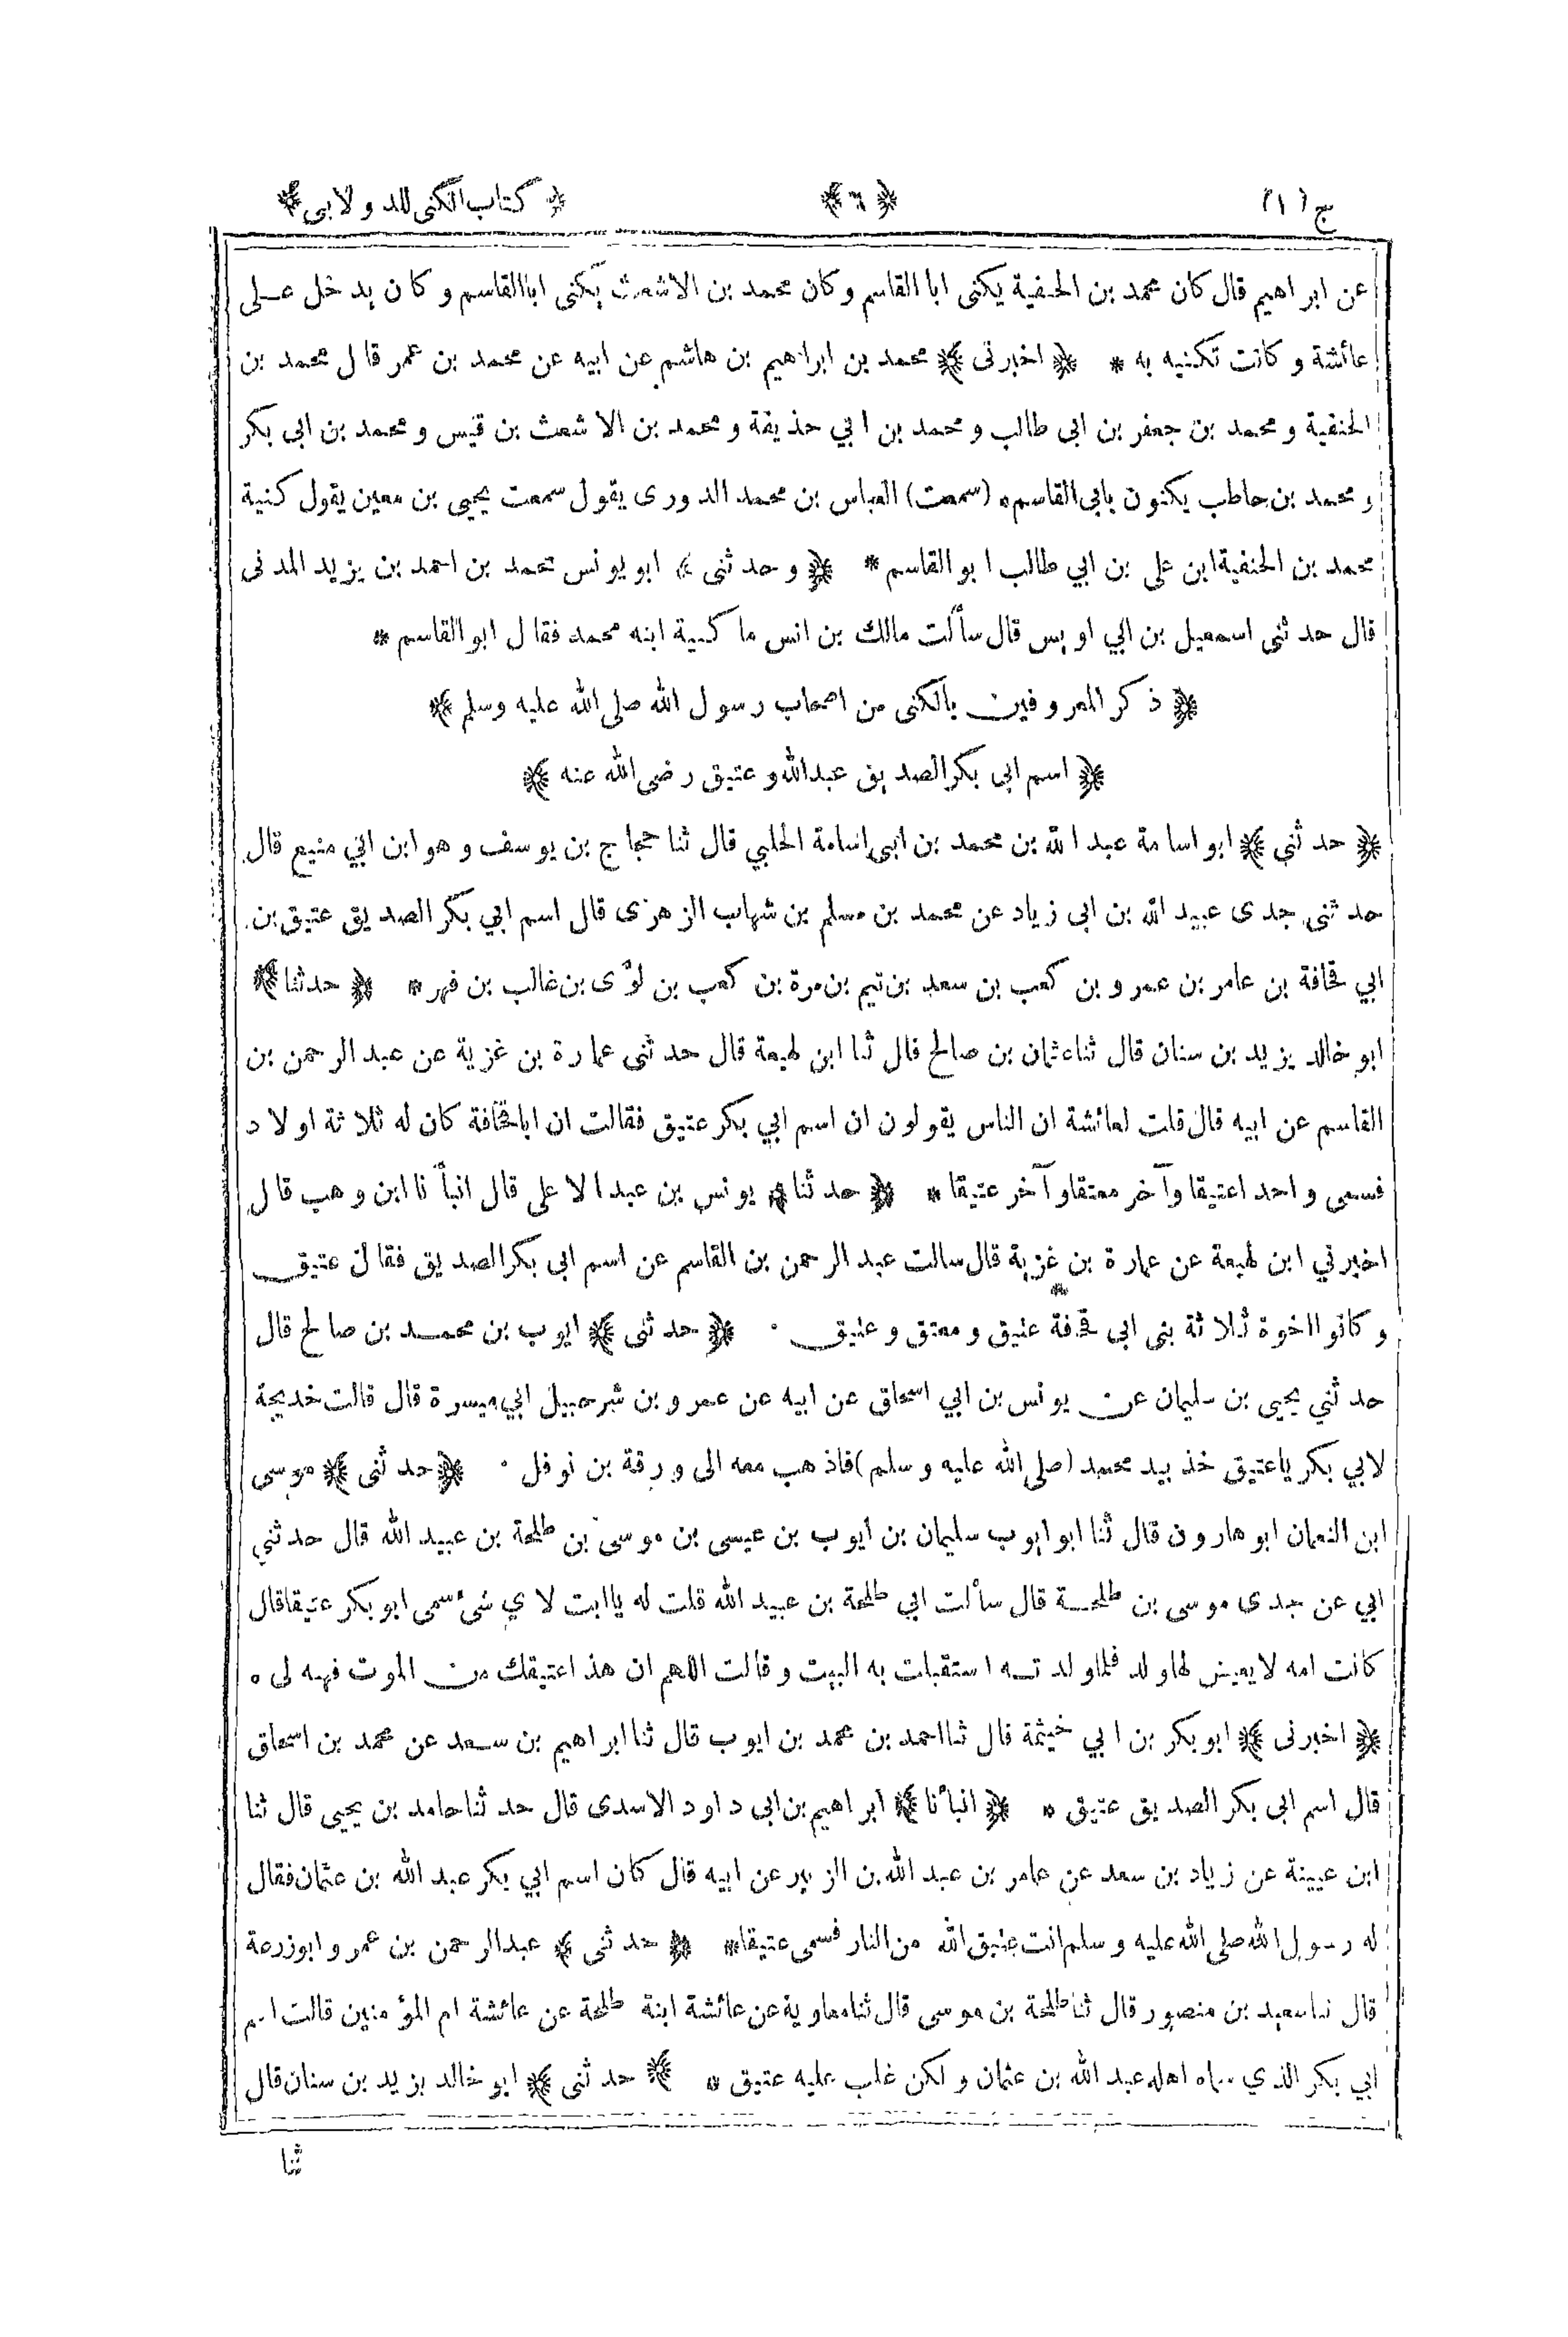 ج (١) ﴿٦﴾ ﴿كتاب الكنى للدولابى﴾
عن ابراهيم قال كان محمد بن الحنفية يكنى ابا القاسم وكان محمد بن الاشعث يكنى ابا القاسم وكان يدخل على
عائشة وكانت تكنيه به * ﴿اخبرنى﴾ محمد بن ابراهيم بن هاشم عن ابيه عن محمد بن عمر قال محمد بن
الحنفية و محمد بن جعفر بن ابى طالب و محمد بن ابي حذيفة و محمد بن الاشعث بن قيس و محمد بن ابى بكر
و محمد بن حاطب يكنون بابى القاسم * (سمعت) العباس بن محمد الدورى يقول سمعت يحيى بن معين يقول كنية
محمد بن الحنفية ابن على بن ابي طالب ابو القاسم * ﴿وحدثنى﴾ ابو يونس محمد بن احمد بن يزيد المدنى
قال حدثنى اسمعيل بن ابي اويس قال سألت مالك بن انس ما كنية ابنه محمد فقال ابو القاسم *
﴿ذكر المعروفين بالكنى من اصحاب رسول الله صلى الله عليه وسلم﴾
﴿اسم ابى بكر الصديق عبدالله وعتيق رضى الله عنه﴾
﴿حدثني﴾ ابو اسامة عبد الله بن محمد بن ابى اسامة الحلبي قال ثنا حجاج بن يوسف وهو ابن ابي منيع قال
حدثنى جدى عبيد الله بن ابى زياد عن محمد بن مسلم بن شهاب الزهرى قال اسم ابي بكر الصديق عتيق بن
ابي قحافة بن عامر بن عمرو بن كعب بن سعد بن تيم بن مرة بن كعب بن لؤى بن غالب بن فهر * ﴿حدثنا﴾
ابو خالد يزيد بن سنان قال ثنا عثمان بن صالح قال ثنا ابن لهيعة قال حدثنى عمارة بن غزية عن عبد الرحمن بن
القاسم عن ابيه قال قلت لعائشة ان الناس يقولون ان اسم ابي بكر عتيق فقالت ان ابا قحافة كان له ثلاثة اولاد
فسمى واحدا عتيقا وآخر معتقا وآخر عتيقا * ﴿حدثنا﴾ يونس بن عبد الاعلى قال انبأنا ابن وهب قال
اخبرني ابن لهيعة عن عمارة بن غزية قال سالت عبد الرحمن بن القاسم عن اسم ابى بكر الصديق فقال عتيق
وكانوا اخوة ثلاثة بنى ابى قحافة عتيق ومعتق وعتيق * ﴿حدثنى﴾ ايوب بن محمد بن صالح قال
حدثني يحيى بن سليمان عن يونس بن ابي اسحاق عن ابيه عن عمرو بن شرحبيل ابي ميسرة قال قالت خديجة
لابي بكر ياعتيق خذ بيد محمد (صلى الله عليه وسلم) فاذهب معه الى ورقة بن نوفل * ﴿حدثنى﴾ موسى
ابن النعمان ابو هارون قال ثنا ابو ايوب سليمان بن ايوب بن عيسى بن موسى بن طلحة بن عبيد الله قال حدثني
ابي عن جدى موسى بن طلحة قال سألت ابي طلحة بن عبيد الله قلت له ياابت لاي شىء سمى ابو بكر عتيقا قال
كانت امه لا يعيش لها ولد فلما ولدته استقبلت به البيت وقالت اللهم ان هذا عتيقك من الموت فهبه لى *
﴿اخبرنى﴾ ابو بكر بن ابي خيثمة قال ثنا احمد بن محمد بن ايوب قال ثنا ابراهيم بن سعد عن محمد بن اسحاق
قال اسم ابى بكر الصديق عتيق * ﴿انبأنا﴾ ابراهيم بن ابى داود الاسدى قال حدثنا حامد بن يحيى قال ثنا
ابن عيينة عن زياد بن سعد عن عامر بن عبد الله بن الزبير عن ابيه قال كان اسم ابي بكر عبد الله بن عثمان فقال
له رسول الله صلى الله عليه وسلم انت عتيق الله من النار فسمى عتيقا * ﴿حدثنى﴾ عبدالرحمن بن عمرو ابوزرعة
قال ثنا سعيد بن منصور قال ثنا طلحة بن موسى قال ثنا معاوية عن عائشة ابنة طلحة عن عائشة ام المؤمنين قالت اسم
ابي بكر الذي سماه اهله عبد الله بن عثمان ولكن غلب عليه عتيق * ﴿حدثنى﴾ ابو خالد يزيد بن سنان قال
ثنا